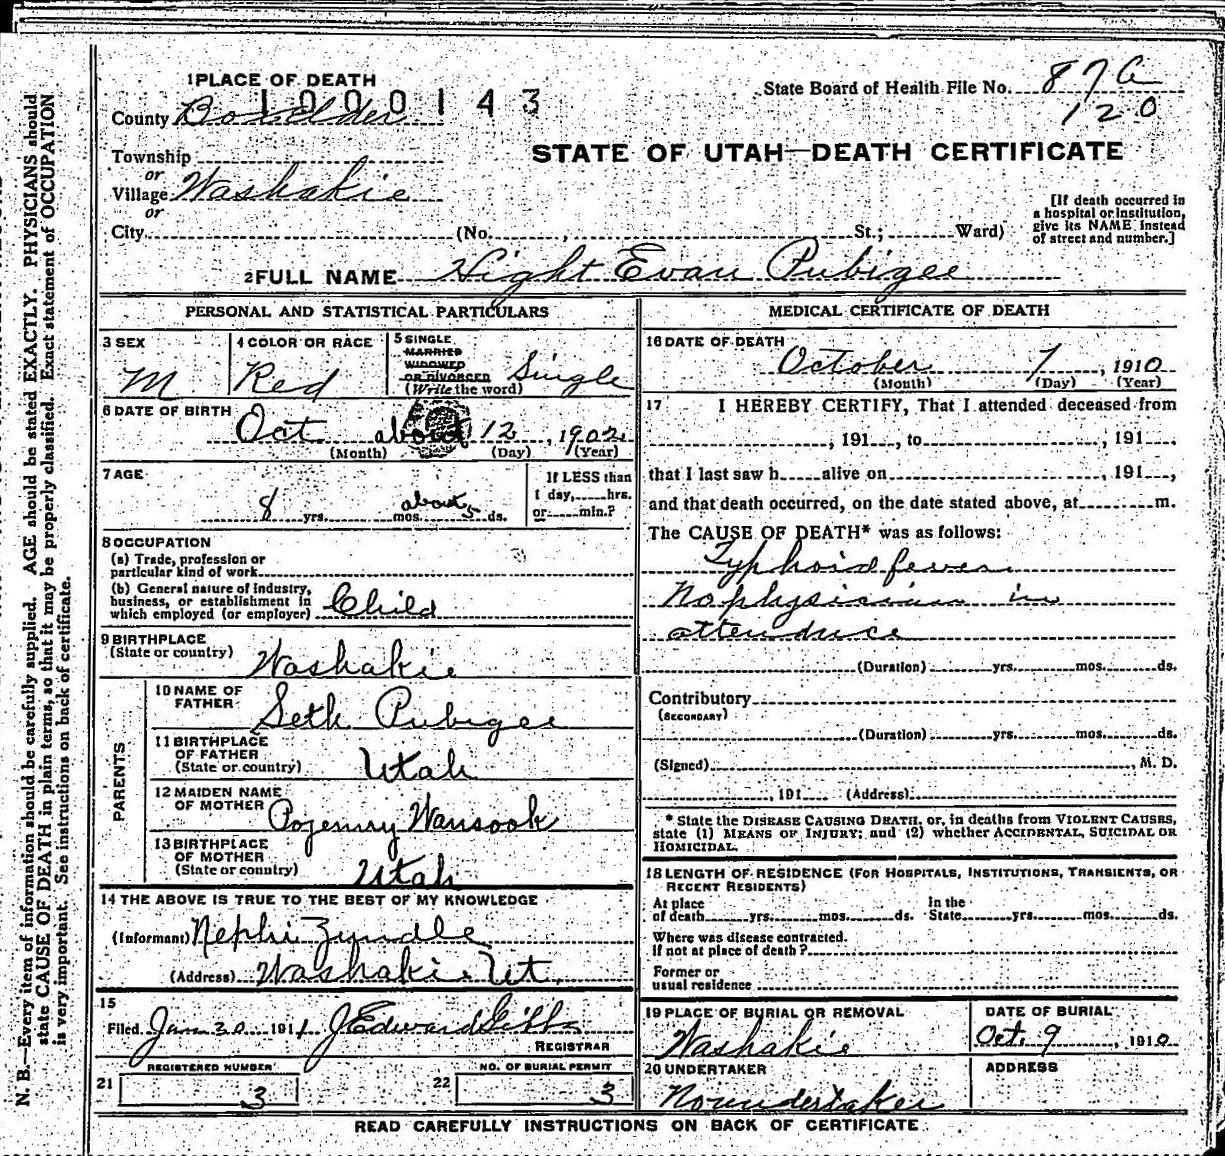 1 PLACE OF DEATH
State Board of Health File No. 87 a
1000143
120
County Boxelder
STATE OF UTAH—DEATH CERTIFICATE
Township
or
Village Washakie
or
City (No. , St.; Ward)
[If death occurred in a hospital or institution, give its NAME instead of street and number.]
2 FULL NAME Hight Evan Pubigee
PERSONAL AND STATISTICAL PARTICULARS
3 SEX M
4 COLOR OR RACE Red
5 SINGLE MARRIED WIDOWED OR DIVORCED (Write the word) Single
6 DATE OF BIRTH Oct about 12, 1902
(Month) (Day) (Year)
7 AGE 8 yrs. mos. about 5 ds.
If LESS than 1 day, hrs. or min.?
8 OCCUPATION
(a) Trade, profession or
particular kind of work
(b) General nature of industry,
business, or establishment in
which employed (or employer) Child
9 BIRTHPLACE
(State or country) Washakie
PARENTS
10 NAME OF FATHER Seth Pubigee
11 BIRTHPLACE OF FATHER (State or country) Utah
12 MAIDEN NAME OF MOTHER Pogemry Wansook
13 BIRTHPLACE OF MOTHER (State or country) Utah
14 THE ABOVE IS TRUE TO THE BEST OF MY KNOWLEDGE
(Informant) Nephi Zyndle
(Address) Washakie Ut.
15
Filed Jan 30 1911 J Edward Gibbs
REGISTRAR
REGISTERED NUMBER NO. OF BURIAL PERMIT
21 3 22 3
MEDICAL CERTIFICATE OF DEATH
16 DATE OF DEATH
October 7, 1910
(Month) (Day) (Year)
17 I HEREBY CERTIFY, That I attended deceased from
, 191 , to , 191 ,
that I last saw h alive on , 191 ,
and that death occurred, on the date stated above, at m.
The CAUSE OF DEATH* was as follows:
Typhoid fever
No physician in
attendnce
(Duration) yrs. mos. ds.
Contributory
(SECONDARY)
(Duration) yrs. mos. ds.
(Signed) , M. D.
, 191 (Address)
* State the DISEASE CAUSING DEATH, or, in deaths from VIOLENT CAUSES,
state (1) MEANS OF INJURY; and (2) whether ACCIDENTAL, SUICIDAL OR
HOMICIDAL.
18 LENGTH OF RESIDENCE (FOR HOSPITALS, INSTITUTIONS, TRANSIENTS, OR
RECENT RESIDENTS)
At place In the
of death yrs. mos. ds. State yrs. mos. ds.
Where was disease contracted.
If not at place of death?
Former or
usual residence
19 PLACE OF BURIAL OR REMOVAL
Washakie
DATE OF BURIAL
Oct. 9, 1910
20 UNDERTAKER
No undertaker
ADDRESS
READ CAREFULLY INSTRUCTIONS ON BACK OF CERTIFICATE
N. B.—Every item of information should be carefully supplied. AGE should be stated EXACTLY. PHYSICIANS should
state CAUSE OF DEATH in plain terms, so that it may be properly classified. Exact statement of OCCUPATION
is very important. See instructions on back of certificate.